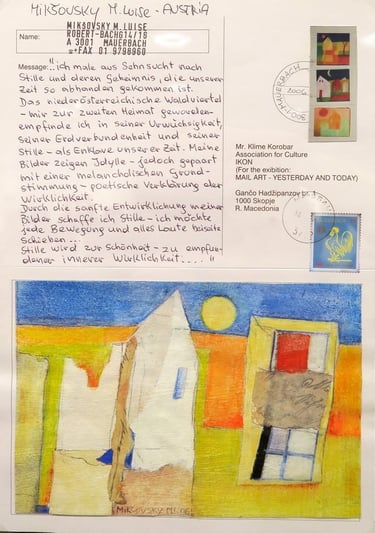 MIKŠOVSKY M. LUISE - AUSTRIA
Name:
MIKSOVSKY M.LUISE
ROBERT-BACHG14/18
A 3001 MAUERBACH
☎+FAX 01 9798960
Message: "ich male aus Sehnsucht nach
Stille und deren Geheimnis, die unserer
Zeit so abhanden gekommen ist.
Das niederösterreichische Waldviertel
- mir zur zweiten Heimat geworden -
empfinde ich in seiner Urwüchsigkeit,
seiner Erdverbundenheit und seiner
Stille - als Enklave unserer Zeit. Meine
Bilder zeigen Idylle - jedoch gepaart
mit einer melancholischen Grund-
stimmung - poetische Verklärung der
Wirklichkeit.
Durch die sanfte Entwirklichung meiner
Bilder schaffe ich Stille - ich möchte
jede Bewegung und alles Laute beiseite
schieben...
Stille wird zur Schönheit - zu empfun-
dener innerer Wirklichkeit...."
3001 MAUERBACH
2006
Mr. Klime Korobar
Association for Culture
IKON
(For the exibition:
MAIL ART - YESTERDAY AND TODAY)
Gančo Hadžipanzov br. 1
1000 Skopje
R. Macedonia
MIKŠOVSKY M.